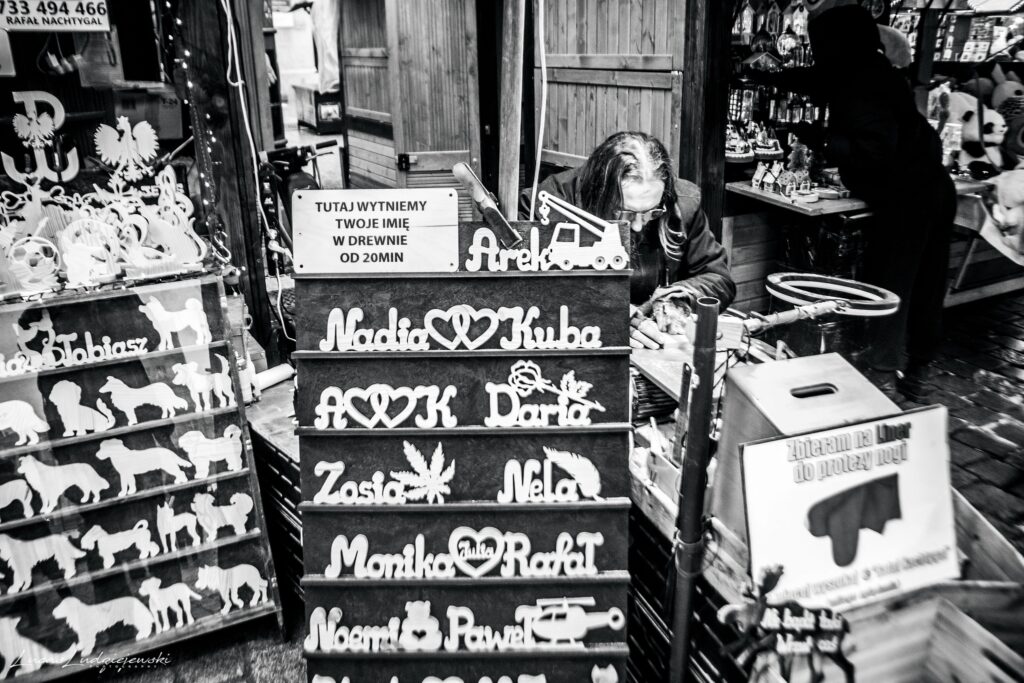 733 494 466
RAFAŁ NACHTYGAL
TUTAJ WYTNIEMY
TWOJE IMIĘ
W DREWNIE
OD 20MIN
Arek
Nadia Kuba
A K Daria
Zosia Nela
Monika Julia Rafał
Noemi Paweł
Tobiasz
Zbieram na Liner
do protezy nogi